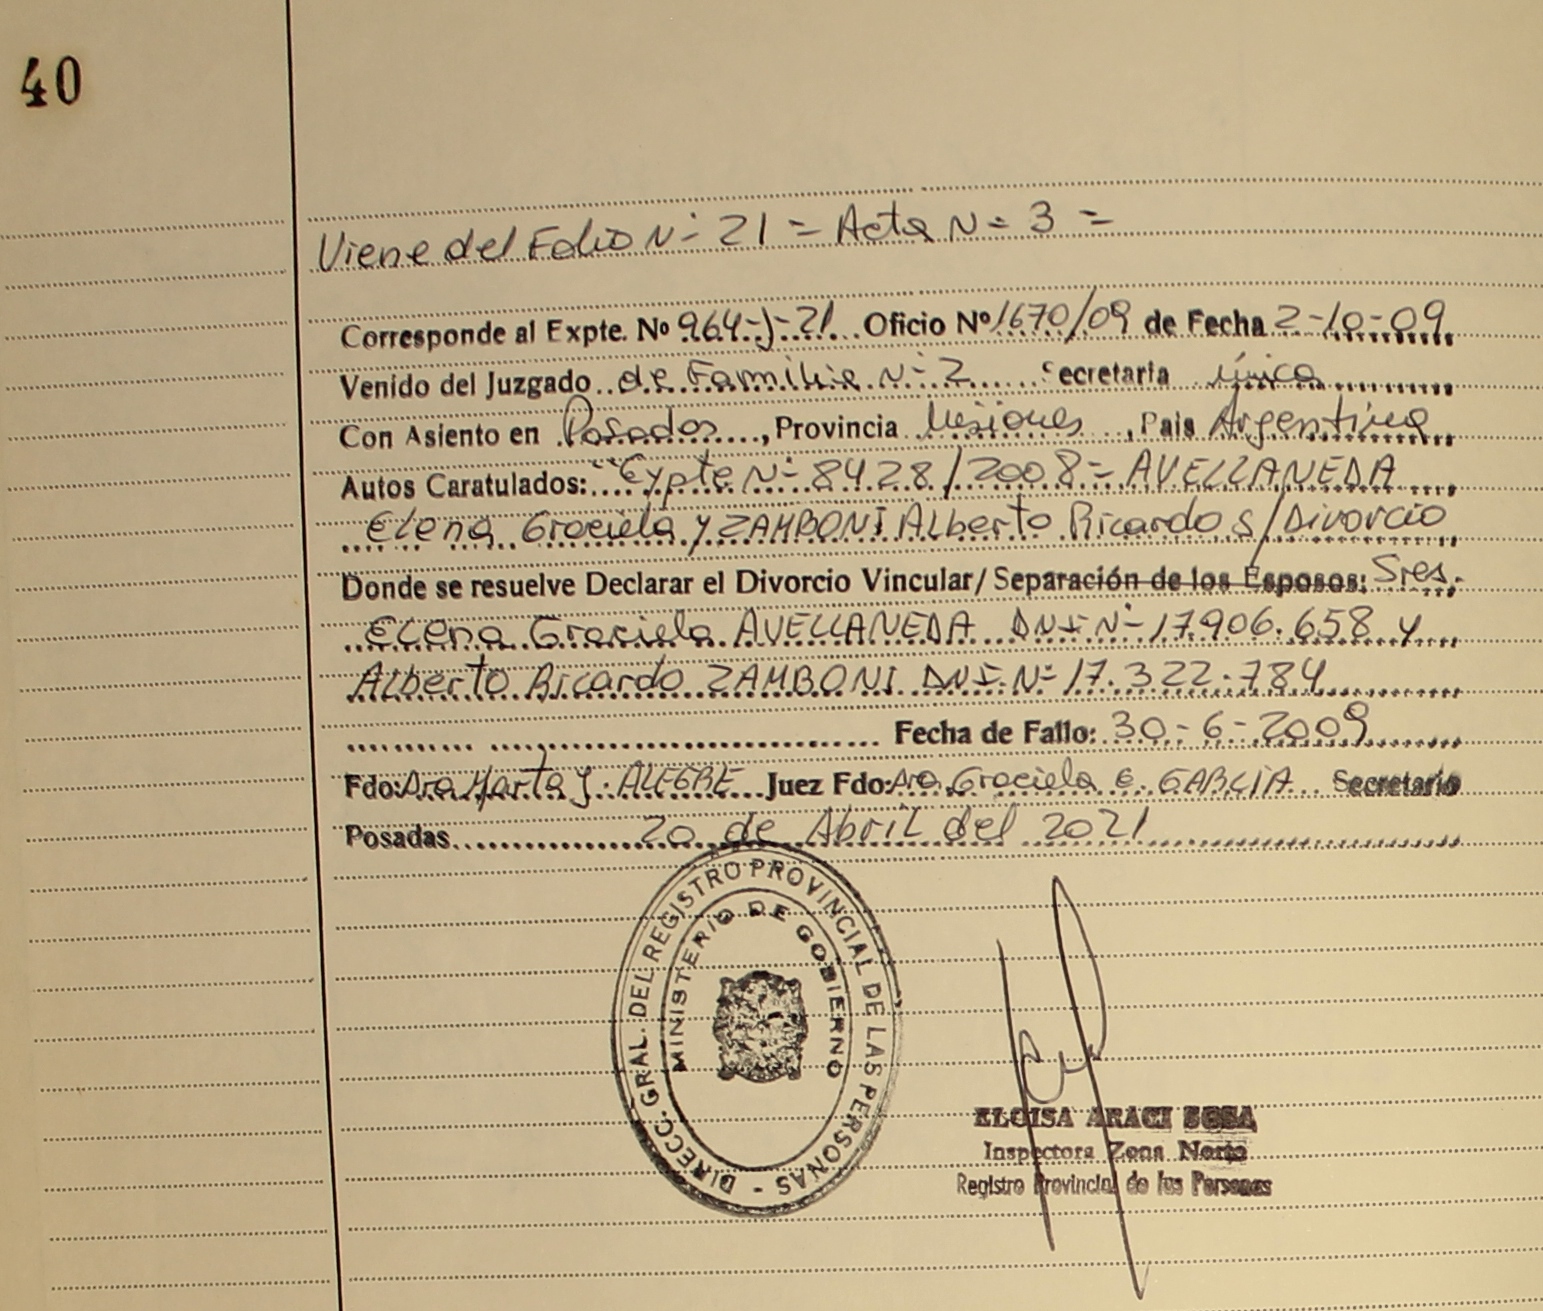 40
Viene del Folio N- 21 = Acta N= 3 =
Corresponde al Expte. Nº 964-J-21 Oficio Nº 1670/09 de Fecha 2-10-09
Venido del Juzgado de Familia N- 2 Secretaria única
Con Asiento en Posadas, Provincia Misiones, Pais Argentina
Autos Caratulados: "Expte N- 8428/2008 = AVELLANEDA
Elena Graciela y ZAMBONI Alberto Ricardo S/Divorcio
Donde se resuelve Declarar el Divorcio Vincular/ Separación de los Esposos: Sres.
Elena Graciela AVELLANEDA DNI N- 17.906.658 y
Alberto Ricardo ZAMBONI DNI. N- 17.322.784
Fecha de Fallo: 30-6-2009
Fdo: Dra Marta J. ALEGRE Juez Fdo: Dra Graciela E. GARCIA Secretario
Posadas 20 de Abril del 2021
DIRECC. GRAL. DEL REGISTRO PROVINCIAL DE LAS PERSONAS -
MINISTERIO DE GOBIERNO
ELOISA ARACI SOSA
Inspectora Zona Norte
Registro Provincial de las Personas